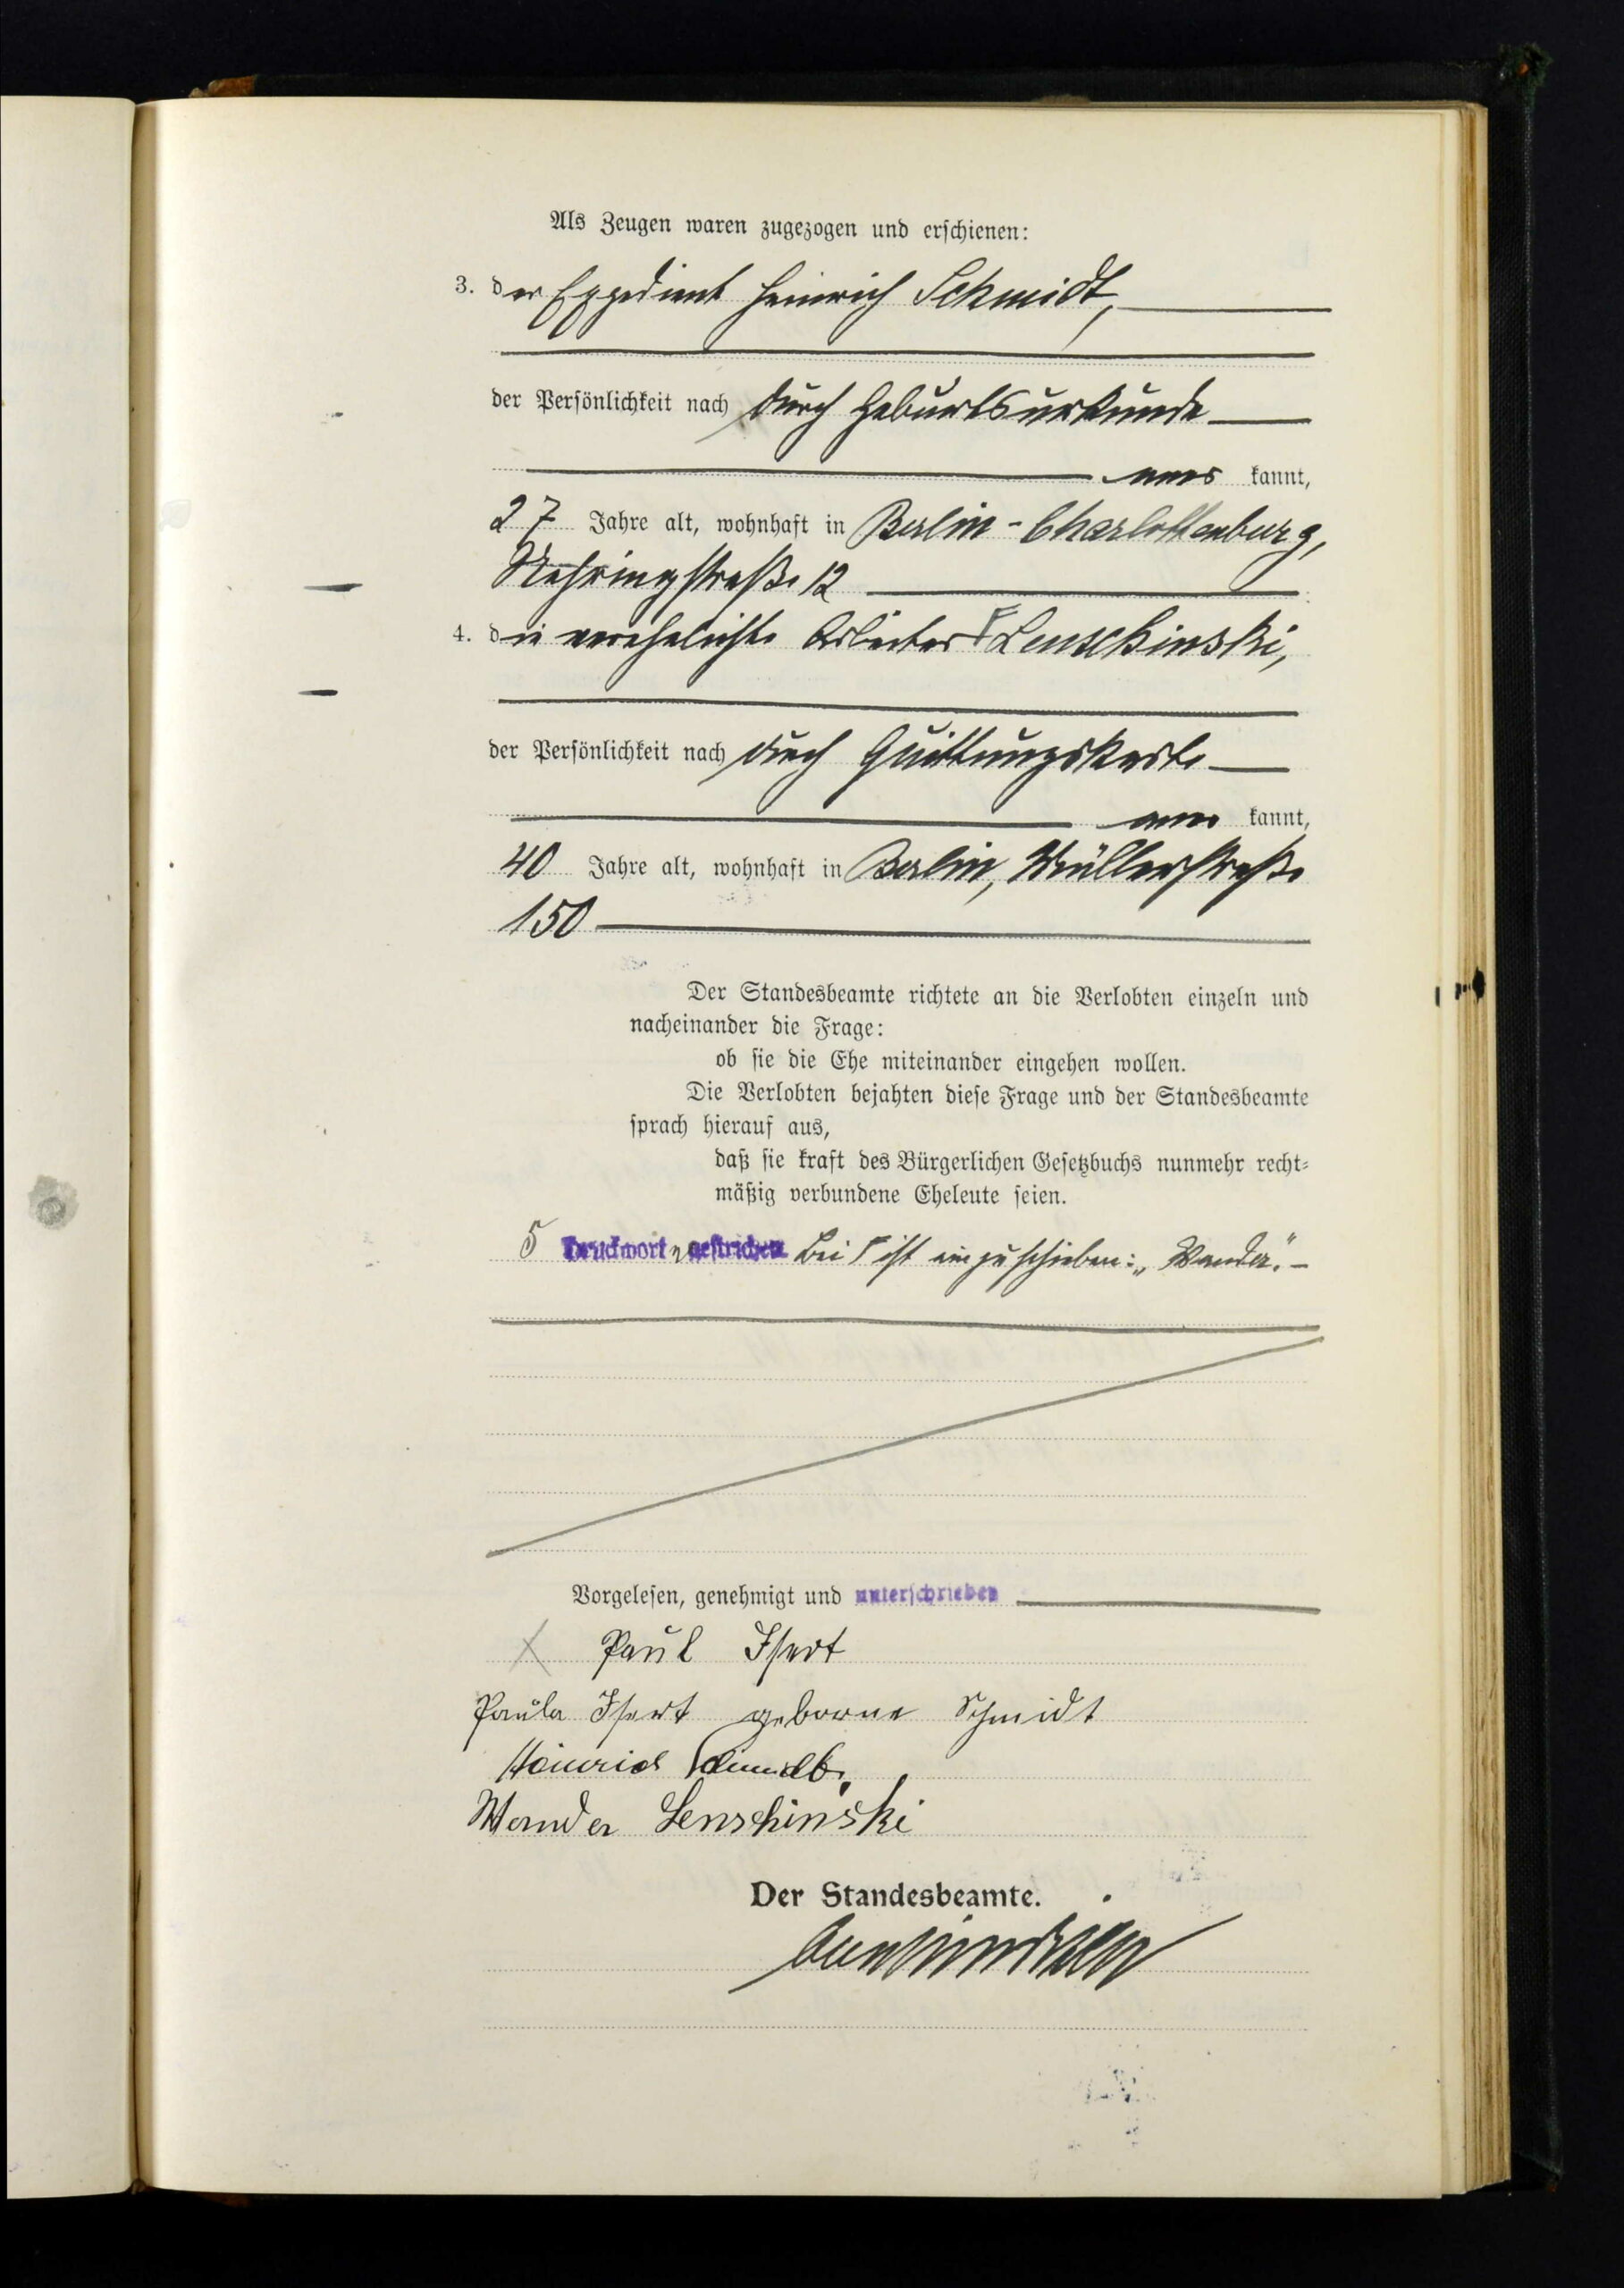 Als Zeugen waren zugezogen und erschienen:
3. der Expedient Heinrich Schmidt,
der Persönlichkeit nach durch Geburtsurkunde
aner kannt,
27 Jahre alt, wohnhaft in Berlin-Charlottenburg,
Nehringstraße 12
4. die verehelichte Arbeiter Γ Lenschinski,
der Persönlichkeit nach durch Quittungskarte
aner kannt,
40 Jahre alt, wohnhaft in Berlin, Müllerstraße
150
Der Standesbeamte richtete an die Verlobten einzeln und
nacheinander die Frage:
ob sie die Ehe miteinander eingehen wollen.
Die Verlobten bejahten diese Frage und der Standesbeamte
sprach hierauf aus,
daß sie kraft des Bürgerlichen Gesetzbuchs nunmehr recht-
mäßig verbundene Eheleute seien.
5 Druckworte gestrichen. Bei Γ ist einzuschieben: „Wanda“. –
Vorgelesen, genehmigt und unterschrieben
Paul Isert
Paula Isert geborne Schmidt
Heinrich Schmidt.
Wanda Lenschinski
Der Standesbeamte.